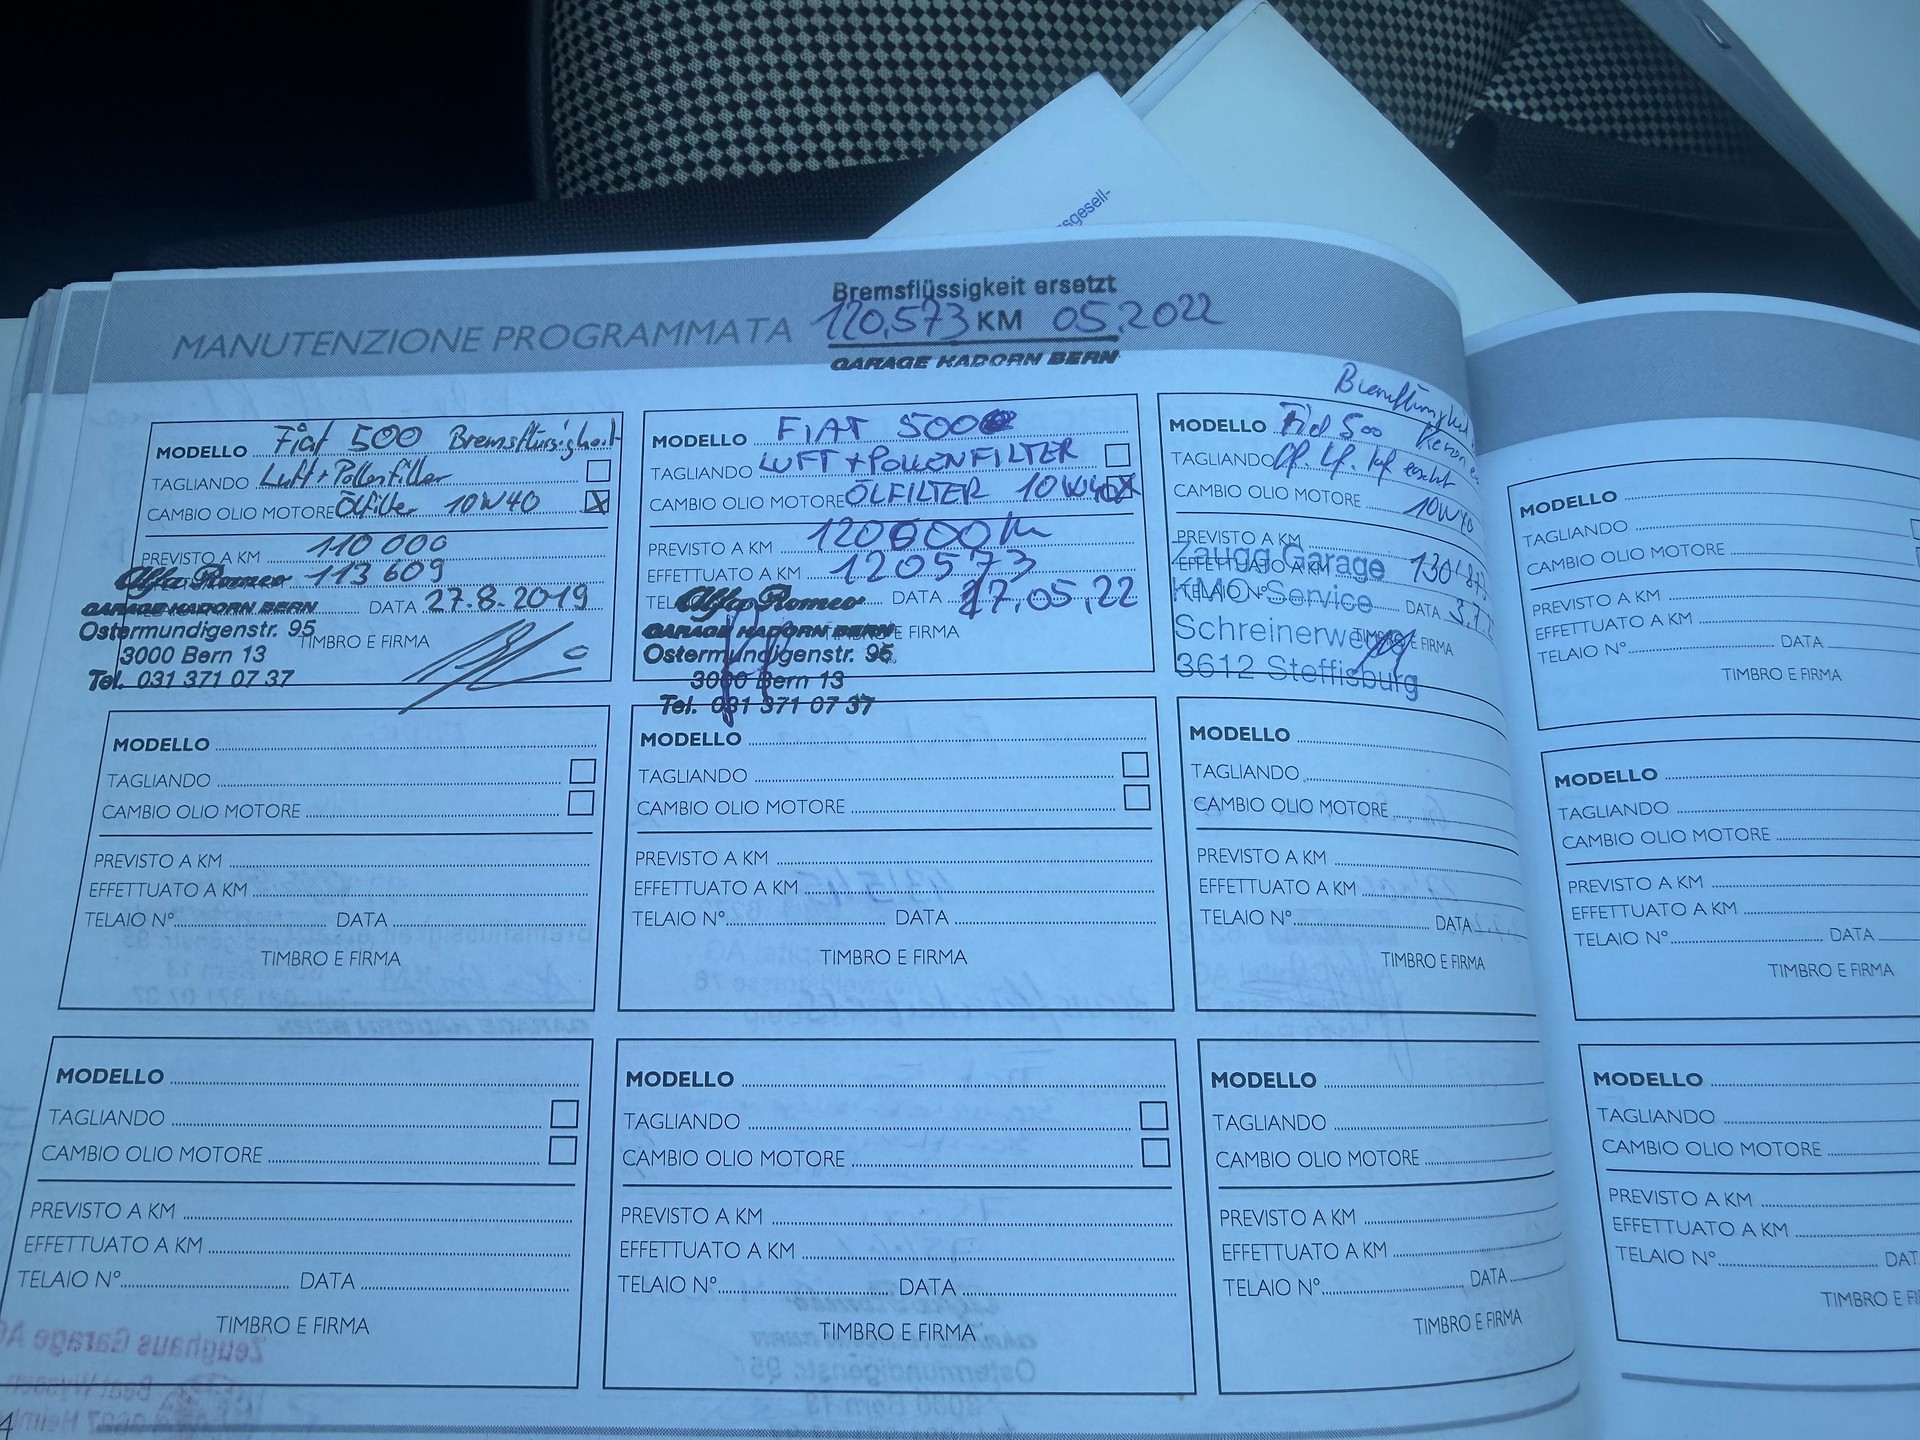 sgesell-
Bremsflüssigkeit ersetzt
120.573 KM 05.2022
GARAGE KADORN BERN
MANUTENZIONE PROGRAMMATA
MODELLO Fiat 500 Bremsflüssigkeit
TAGLIANDO Luft + Pollenfilter
CAMBIO OLIO MOTORE Ölfilter 10W40
PREVISTO A KM 110 000
Alfa Romeo 113 609
GARAGE KADORN BERN DATA 27.8.2019
Ostermundigenstr. 95
TIMBRO E FIRMA
3000 Bern 13
Tel. 031 371 07 37
MODELLO FIAT 500
TAGLIANDO LUFT + POLLENFILTER
CAMBIO OLIO MOTORE ÖLFILTER 10W40
PREVISTO A KM 120000 Km
EFFETTUATO A KM 120573
TEL Alfa Romeo DATA 27.05.22
GARAGE KADORN BERN E FIRMA
Ostermundigenstr. 95
3000 Bern 13
Tel. 031 371 07 37
MODELLO Fiat 500
TAGLIANDO
CAMBIO OLIO MOTORE 10W40
PREVISTO A KM
Zaugg Garage
EFFETTUATO A KM
KMO-Service
TELAIO N° DATA
Schreinerweg
TIMBRO E FIRMA
3612 Steffisburg
MODELLO
TAGLIANDO
CAMBIO OLIO MOTORE
PREVISTO A KM
EFFETTUATO A KM
TELAIO N° DATA
TIMBRO E FIRMA
MODELLO
TAGLIANDO
CAMBIO OLIO MOTORE
PREVISTO A KM
EFFETTUATO A KM
TELAIO N° DATA
TIMBRO E FIRMA
MODELLO
TAGLIANDO
CAMBIO OLIO MOTORE
PREVISTO A KM
EFFETTUATO A KM
TELAIO N° DATA
TIMBRO E FIRMA
MODELLO
TAGLIANDO
CAMBIO OLIO MOTORE
PREVISTO A KM
EFFETTUATO A KM
TELAIO N° DATA
TIMBRO E FIRMA
MODELLO
TAGLIANDO
CAMBIO OLIO MOTORE
PREVISTO A KM
EFFETTUATO A KM
TELAIO N° DATA
TIMBRO E FIRMA
MODELLO
TAGLIANDO
CAMBIO OLIO MOTORE
PREVISTO A KM
EFFETTUATO A KM
TELAIO N° DATA
TIMBRO E FIRMA
MODELLO
TAGLIANDO
CAMBIO OLIO MOTORE
PREVISTO A KM
EFFETTUATO A KM
TELAIO N° DATA
TIMBRO E FIRMA
MODELLO
TAGLIANDO
CAMBIO OLIO MOTORE
PREVISTO A KM
EFFETTUATO A KM
TELAIO N° DATA
TIMBRO E FIRMA
MODELLO
TAGLIANDO
CAMBIO OLIO MOTORE
PREVISTO A KM
EFFETTUATO A KM
TELAIO N° DAT
TIMBRO E FI
4